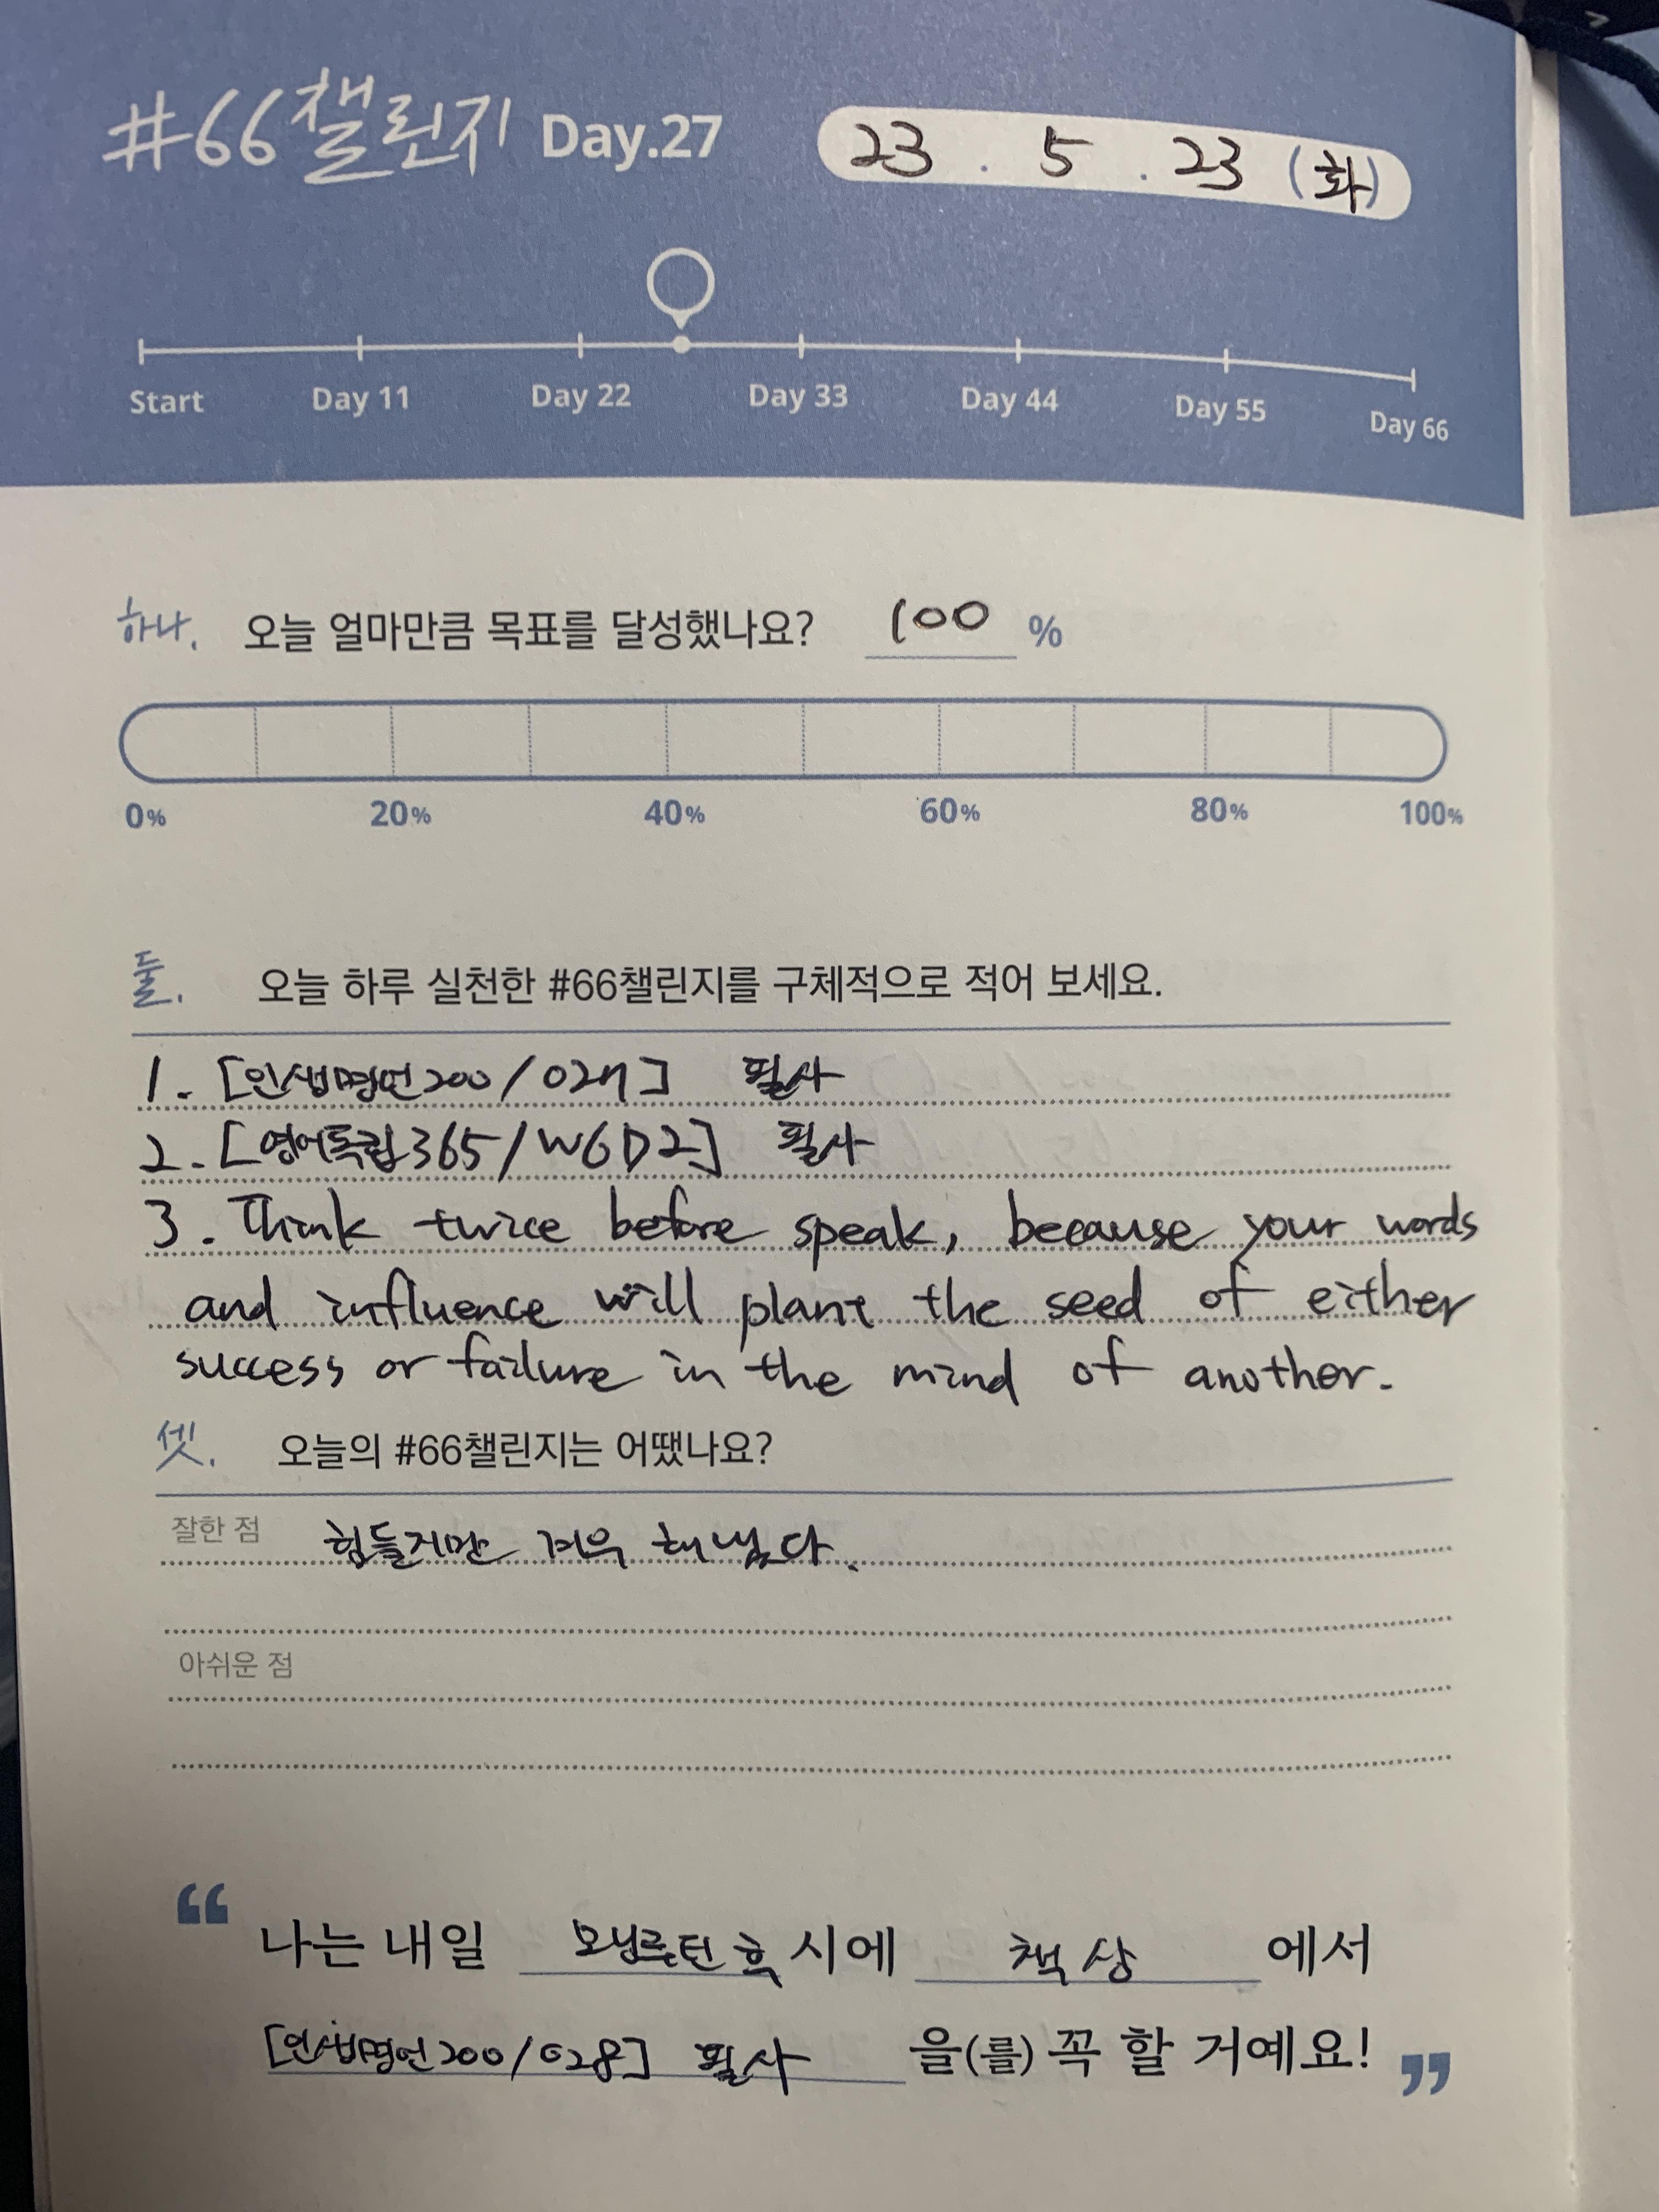 #66챌린지 Day.27 23 . 5 . 23 (화)
Start Day 11 Day 22 Day 33 Day 44 Day 55 Day 66
하나. 오늘 얼마만큼 목표를 달성했나요? 100 %
0% 20% 40% 60% 80% 100%
둘. 오늘 하루 실천한 #66챌린지를 구체적으로 적어 보세요.
1. [인생명언200/027] 필사
2. [영어독립365/W6D2] 필사
3. Think twice before speak, because your words
and influence will plant the seed of either
success or failure in the mind of another.
셋. 오늘의 #66챌린지는 어땠나요?
잘한 점 힘들지만 겨우 해냈다.
아쉬운 점
“ 나는 내일 모닝루틴 후 시에 책상 에서
[인생명언200/028] 필사 을(를) 꼭 할 거예요! ”